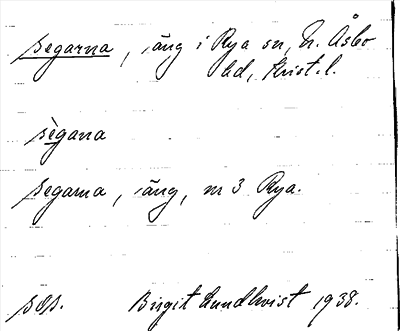 Segarna, äng i Rya sn, N. Åsbo
hd, Krist. l.
sègana
Segarna, äng, nr 3 Rya.
Birgit Lundkvist 1938.